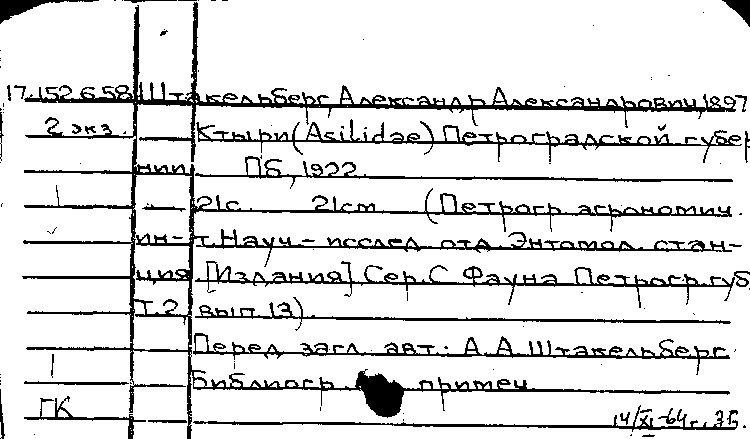 17.152.658 Штакельберг, Александр Александрович, 1897
2 экз. Ктыри (Asilidae) Петроградской губер
нии ПБ, 1922.
21с. 21cm (Петрогр. агрономич.
ин-т. Науч.-исслед. отд. Энтомол. стан-
ция [Издания] Сер. С Фауна Петрогр. губ
Т.2, вып. 13).
Перед загл. авт.: А.А. Штакельберг
Библиогр. примеч.
ГК 14/XI-64г.